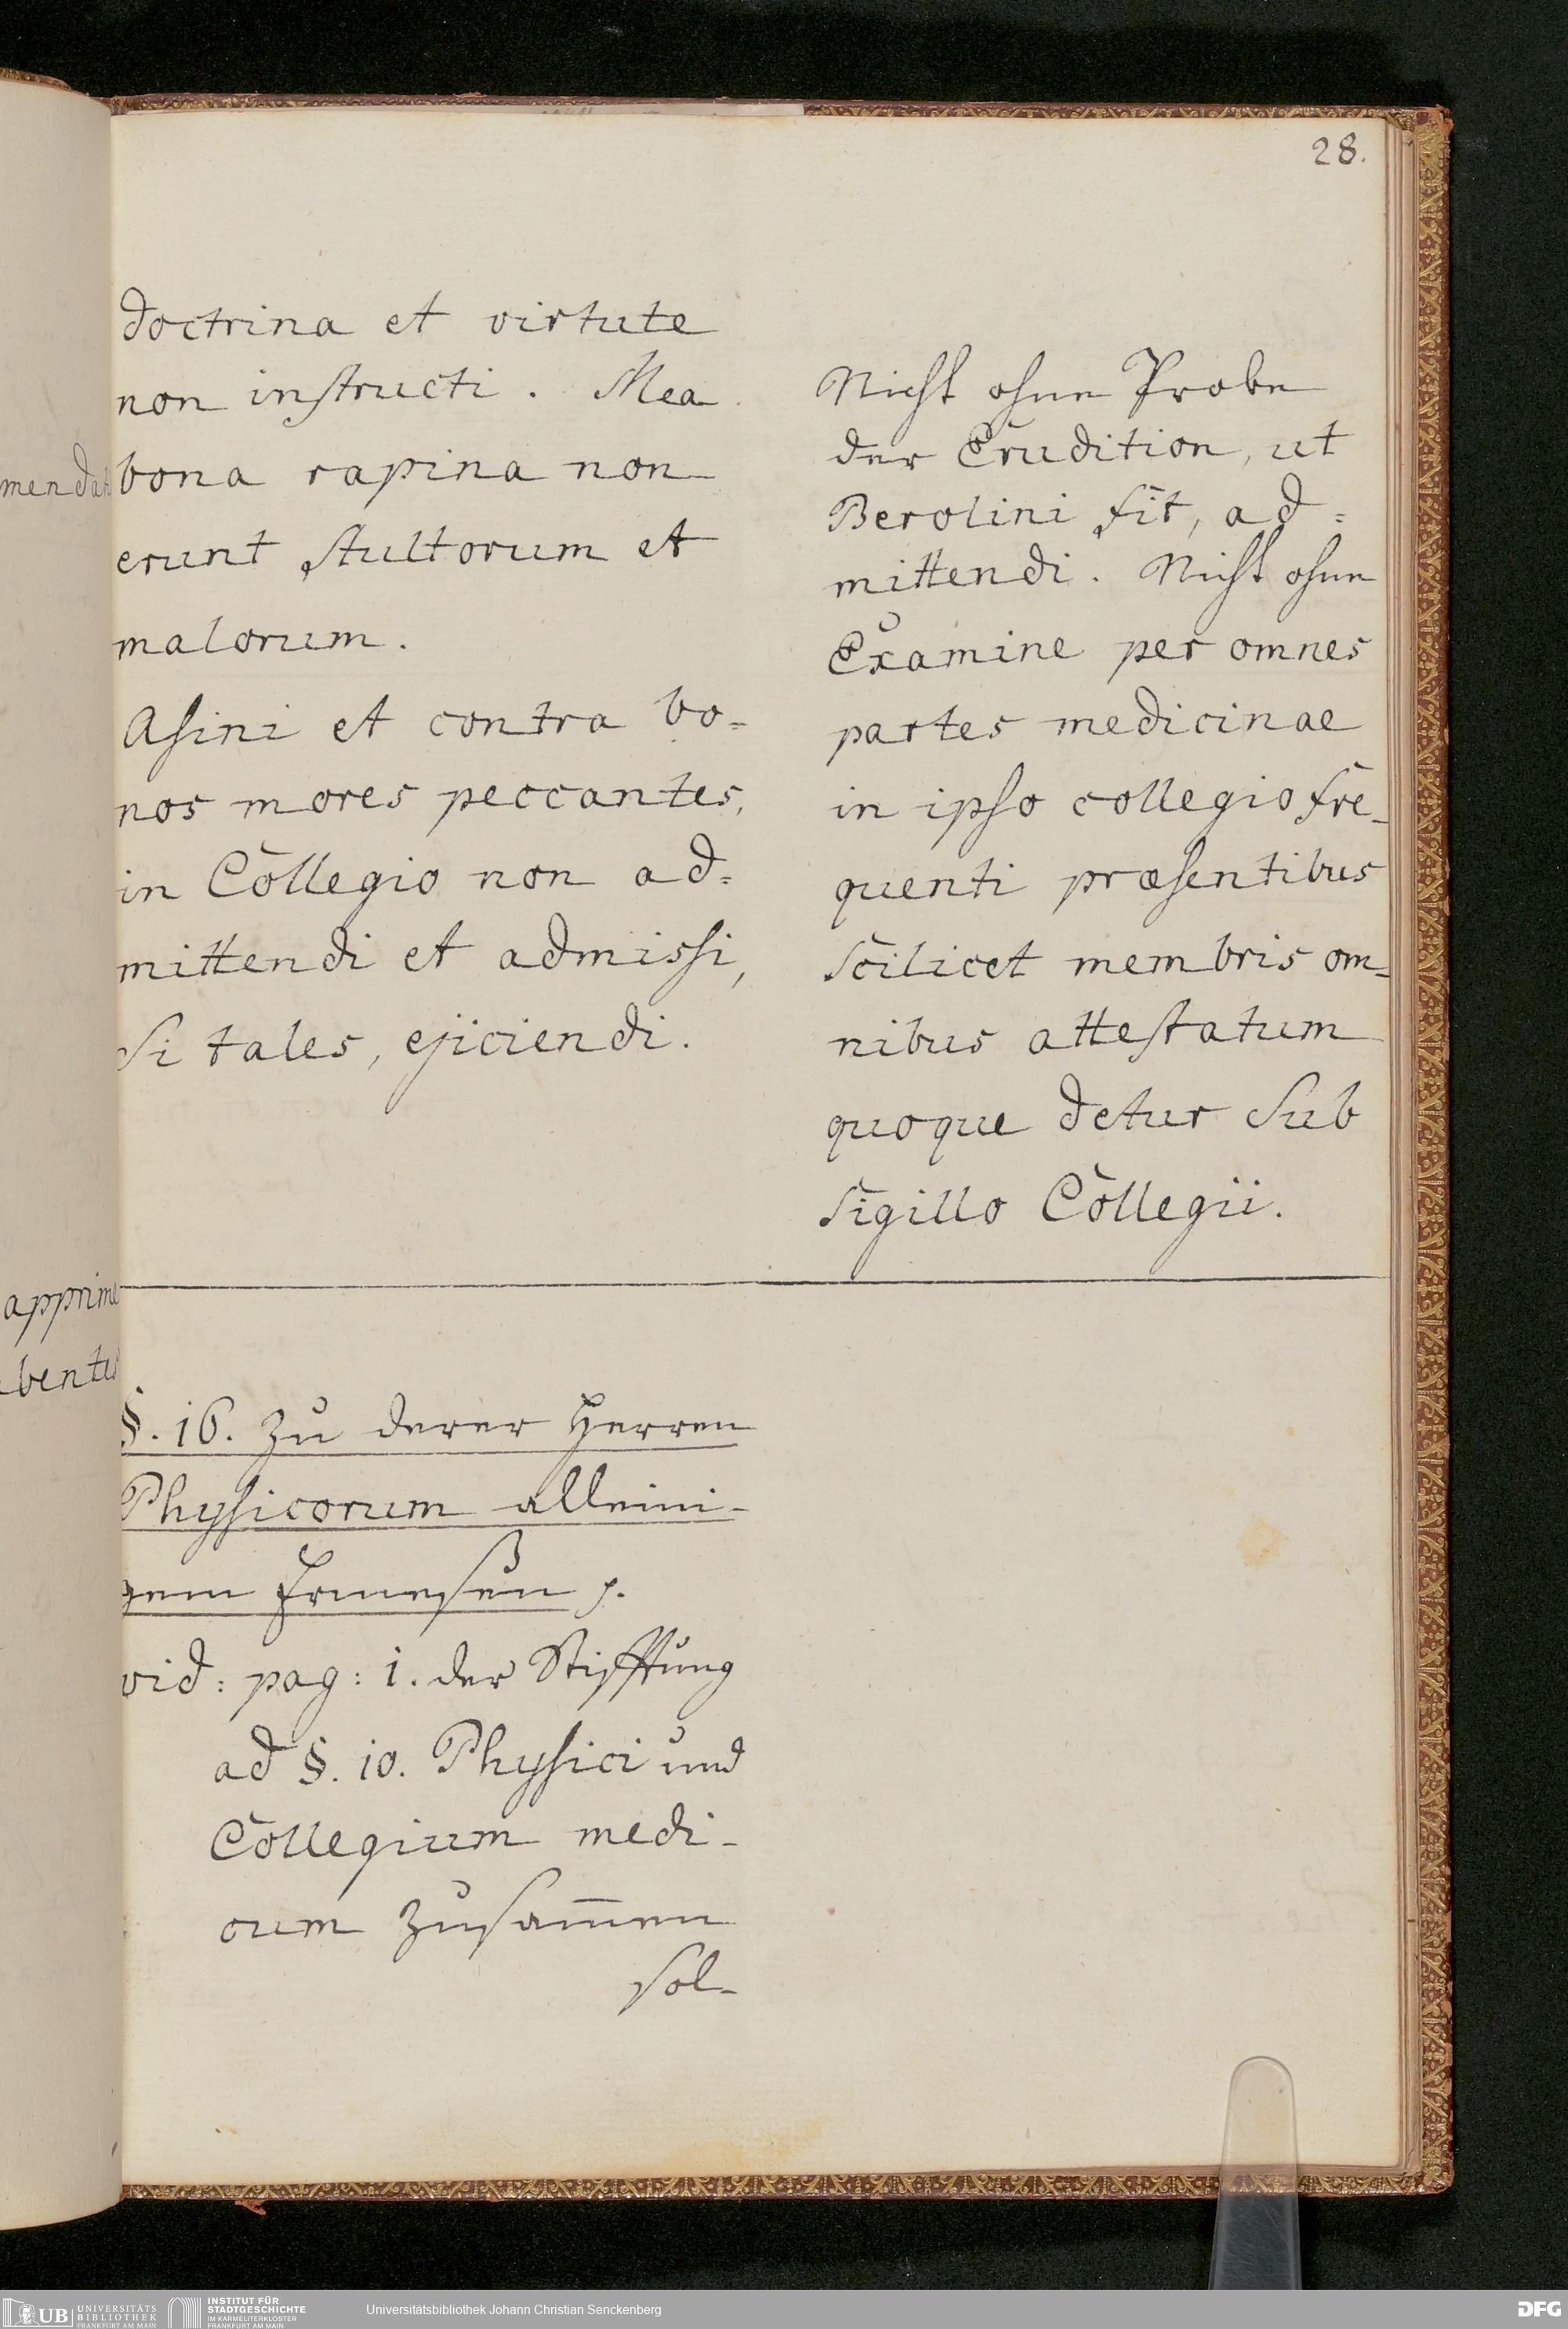 28.
doctrina et virtute
non instructi. Mea
bona rapina non
erunt stultorum et
malorum.
Asini et contra bo=
nos mores peccantes,
in Collegio non ad=
mittendi et admissi,
si tales, ejiciendi.
Nicht ohne Probe
der Erudition, ut
Berolini fit, ad=
mittendi. Nicht ohne
Examine per omnes
partes medicinae
in ipso collegio fre-
quenti præsentibus
scilicet membris om=
nibus attestatum
quoque detur sub
sigillo Collegii.
§. 16. Zu derer Herren
Physicorum alleini-
gem Ermeßen
vid: pag: 1. der Stifftung
ad §. 10. Physici und
Collegium medi-
cum zusam̅en
sol-
mendat
apprime
bentes
UB UNIVERSITÄTS
BIBLIOTHEK
FRANKFURT AM MAIN
INSTITUT FÜR
STADTGESCHICHTE
IM KARMELITERKLOSTER
FRANKFURT AM MAIN
Universitätsbibliothek Johann Christian Senckenberg
DFG